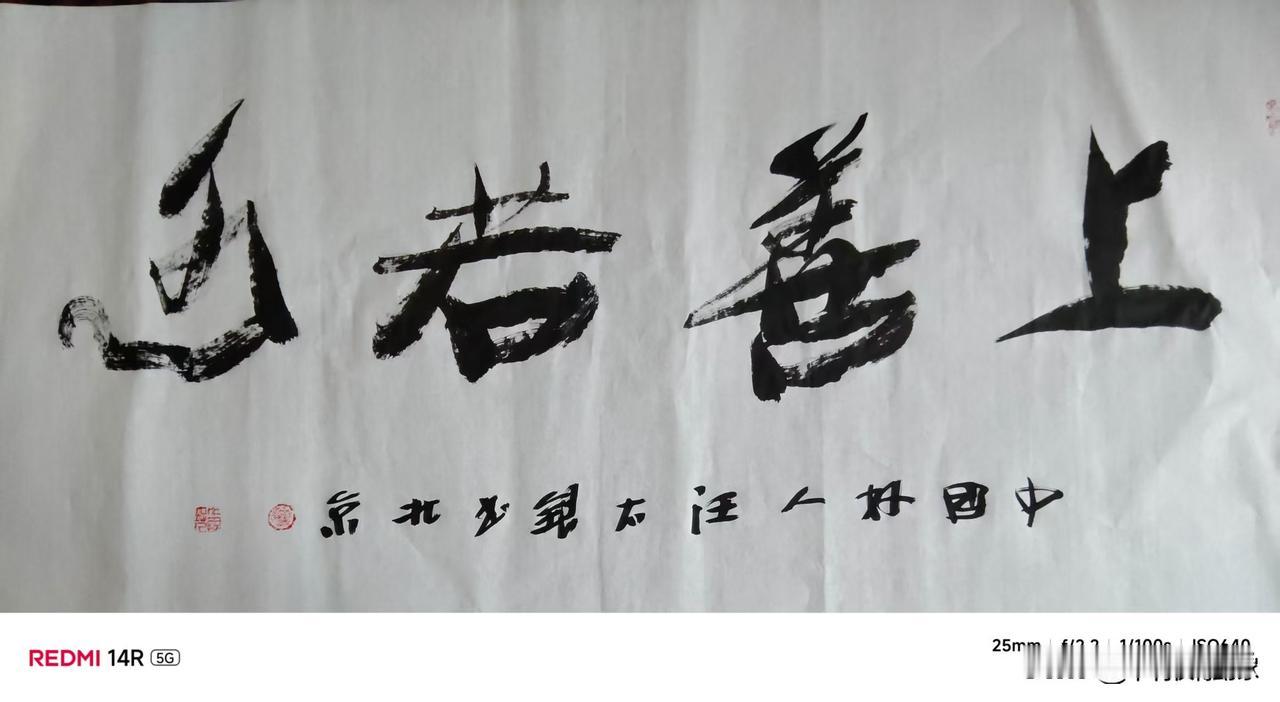 上善若
中國人汪太銀书北京
REDMI 14R 5G
25mm | f/2.2 | 1/100s | ISO640